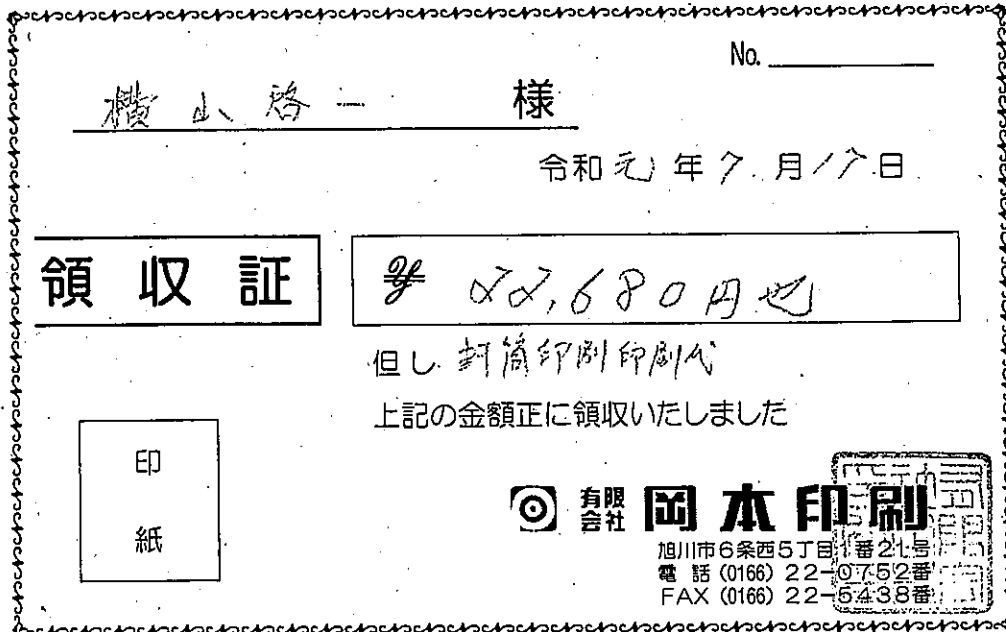 No.
横山啓一 様
令和元年7月17日
領収証
¥ 22,680円也
但し 封筒印刷印刷代
上記の金額正に領収いたしました
印紙
有限会社 岡本印刷
旭川市6条西5丁目1番21号
電話(0166)22-0752番
FAX(0166)22-5438番